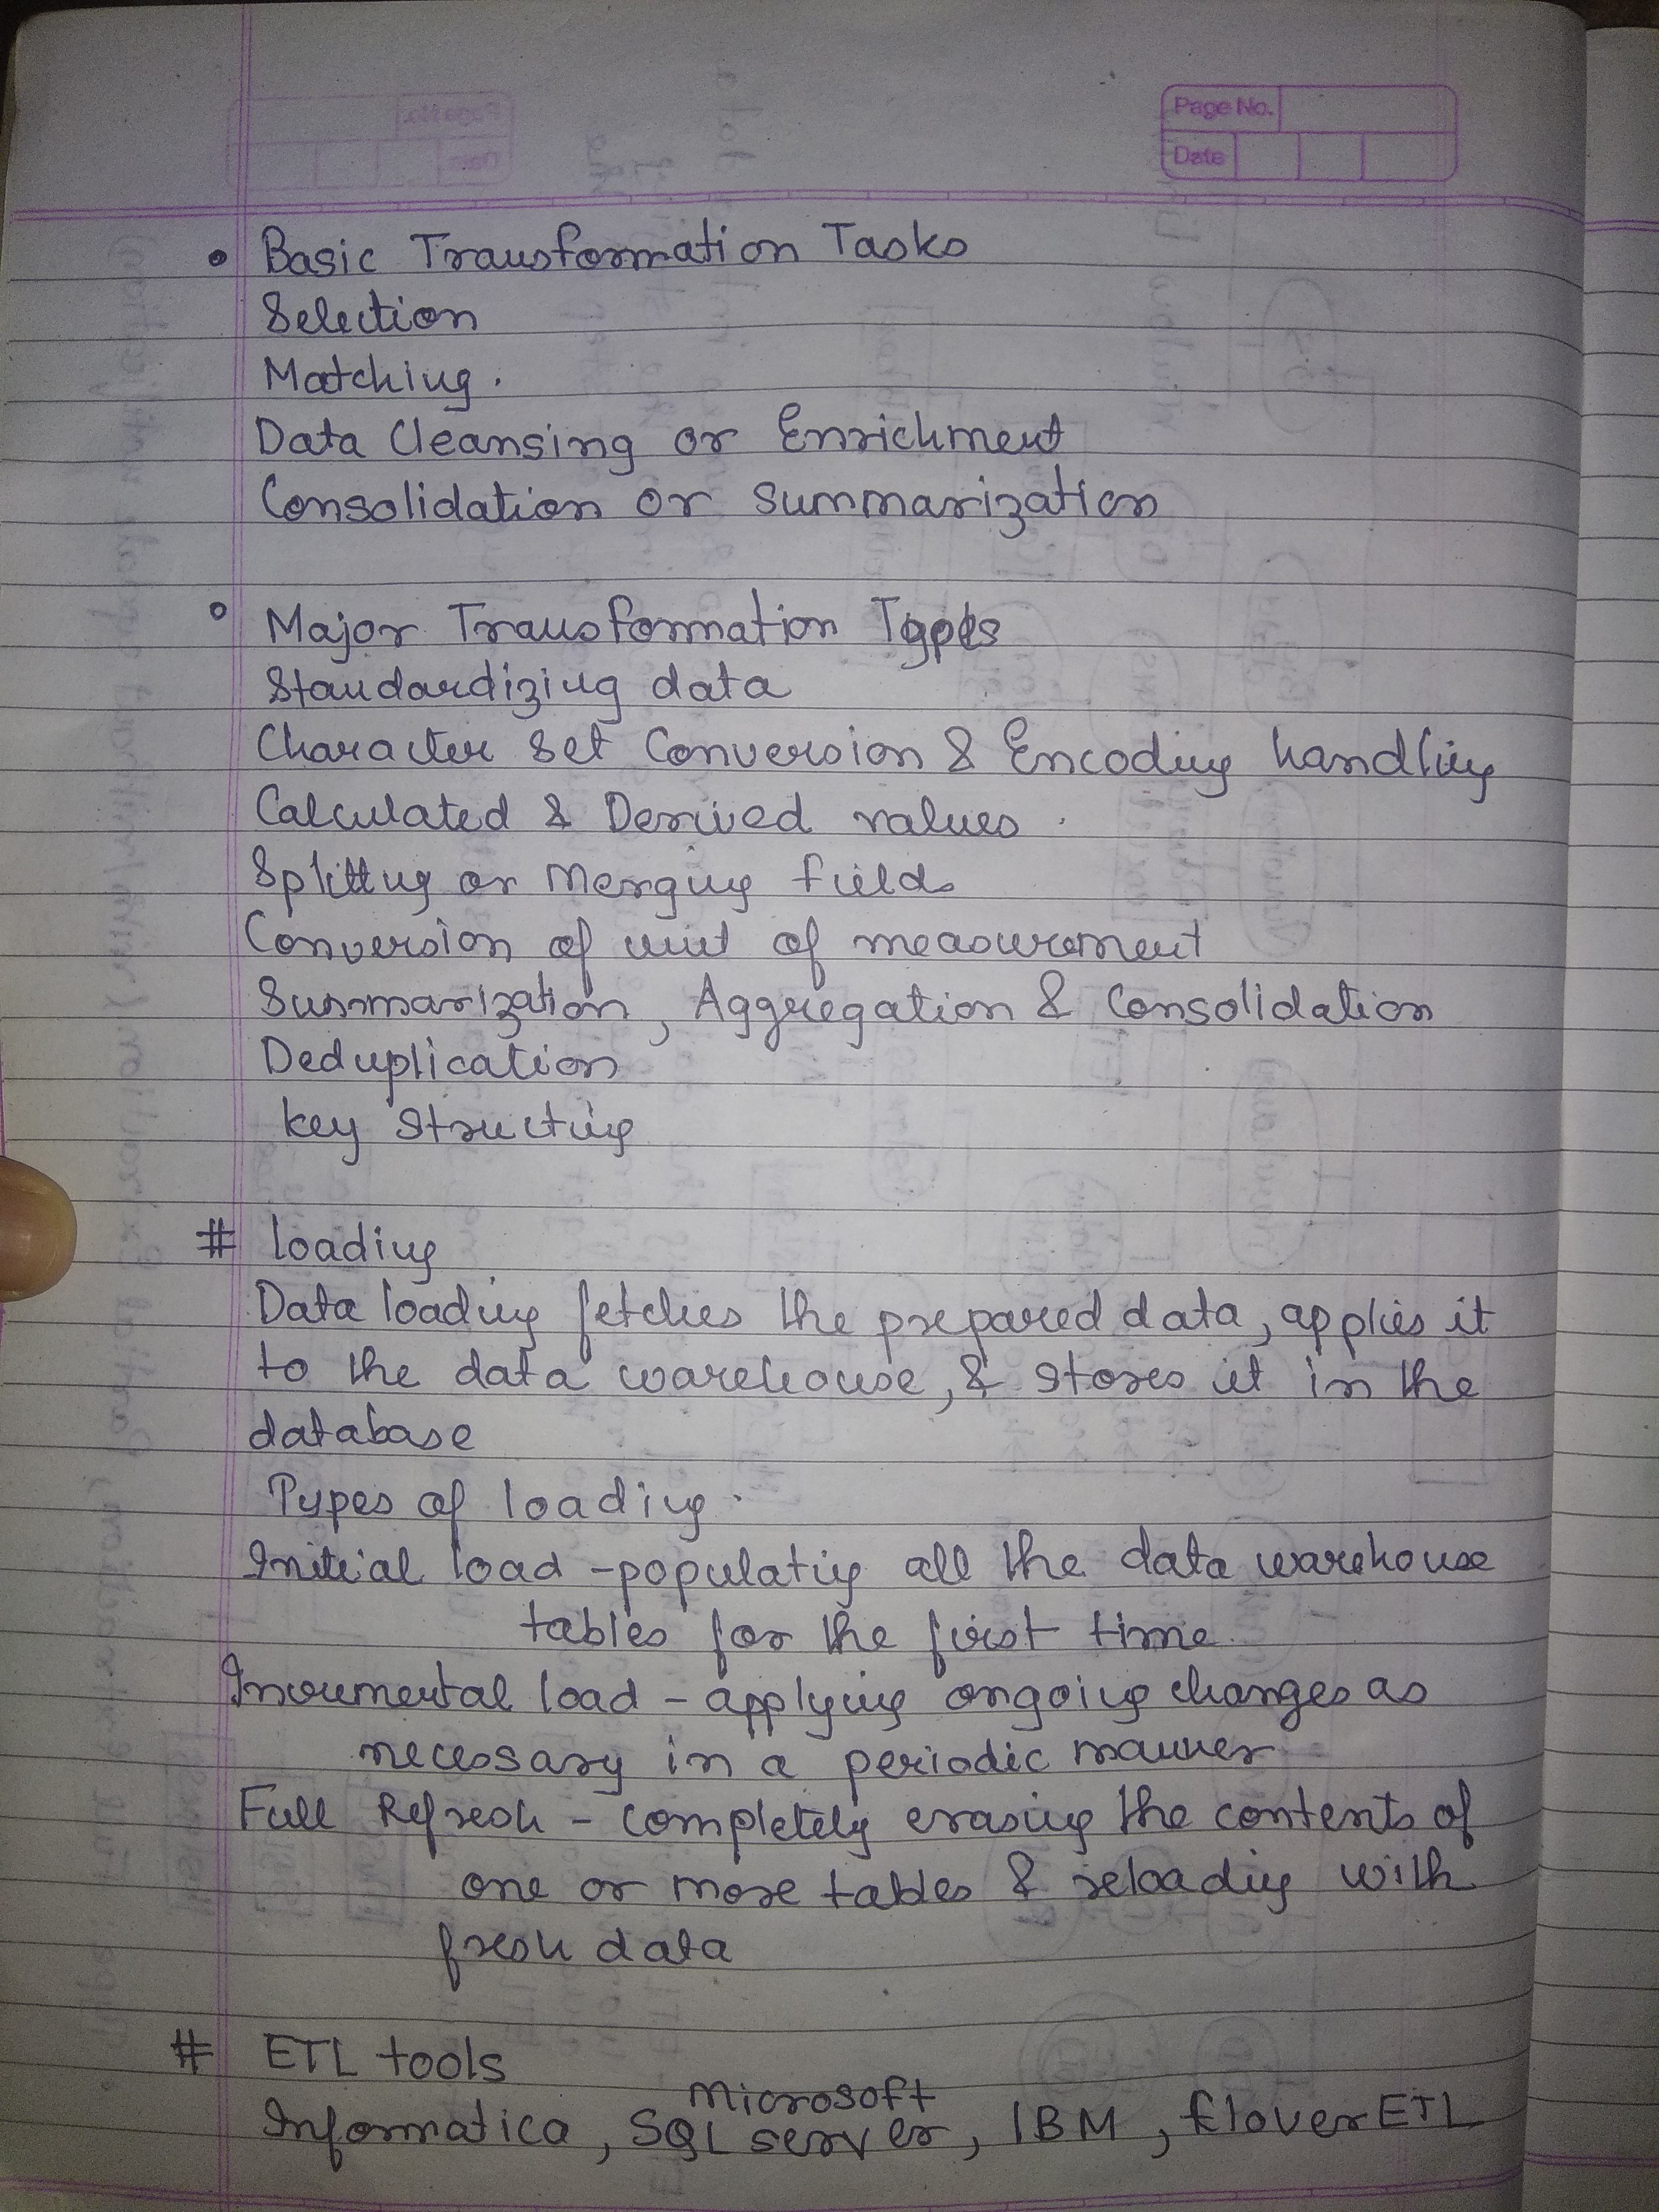 Page No.
Date
• Basic Transformation Tasks
Selection
Matching.
Data Cleansing or Enrichment
Consolidation or Summarization
° Major Transformation Types
Standardizing data
Character Set Conversion & Encoding handling
Calculated & Derived values.
Splitting or Merging field
Conversion of unit of measurement
Summarization, Aggregation & Consolidation
Deduplication
key structing
# loading
Data loading fetches the prepared data, applies it
to the data warehouse, & stores it in the
database
Types of loading.
Initial load - populating all the data warehouse
tables for the first time.
Incremental load - applying ongoing changes as
necessary in a periodic manner
Full Refresh - completely erasing the contents of
one or more tables & reloading with
fresh data
# ETL tools
Microsoft
Informatica, SQL server, IBM, CloverETL